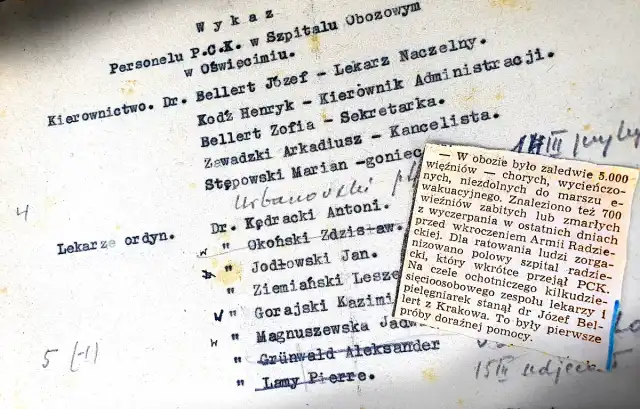 Wykaz
Personelu P.C.K. w Szpitalu Obozowym
w Oświęcimiu.
Kierownictwo. Dr. Bellert Józef - Lekarz Naczelny.
Kodź Henryk - Kierownik Administracji.
Bellert Zofia - Sekretarka.
Zawadzki Arkadiusz - Kancelista.
Stępowski Marian -goniec
Urbanowski
4
Dr. Kędracki Antoni.
Lekarze ordyn. " Okoński Zdzisław.
" Jodłowski Jan.
" Ziemiański Lesze
" Gorajski Kazimi
" Magnuszewska Jadw
5 (-1) " Grünwald Aleksander
" Lamy Pierre.
— W obozie było zaledwie 5.000
więźniów — chorych, wycieńczo-
nych, niezdolnych do marszu e-
wakuacyjnego. Znaleziono też 700
więźniów zabitych lub zmarłych
z wyczerpania w ostatnich dniach
przed wkroczeniem Armii Radzie-
ckiej. Dla ratowania ludzi zorga-
nizowano polowy szpital radzie-
cki, który wkrótce przejął PCK.
Na czele ochotniczego kilkudzie-
sięcioosobowego zespołu lekarzy i
pielęgniarek stanął dr Józef Bel-
lert z Krakowa. To były pierwsze
próby doraźnej pomocy.
15 III